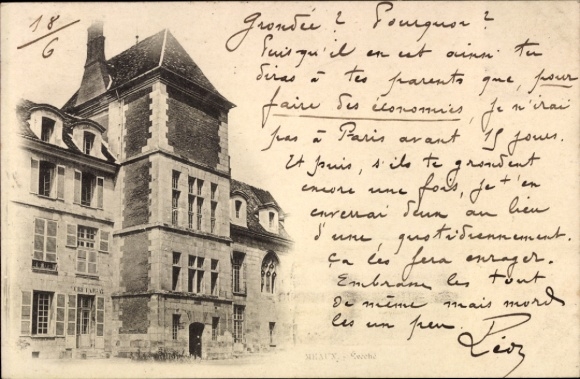 18/6
Grondée ? Pourquoi ?
Puisqu'il en est ainsi tu
diras à tes parents que, pour
faire des économies, je n'irai
pas à Paris avant 15 jours.
Et puis, s'ils te grondent
encore une fois, je t'en
enverrai deux au lieu
d'une, quotidiennement.
Ça les fera enrager.
Embrasse les tout
de même mais mord
les un peu.
MEAUX - Évêché